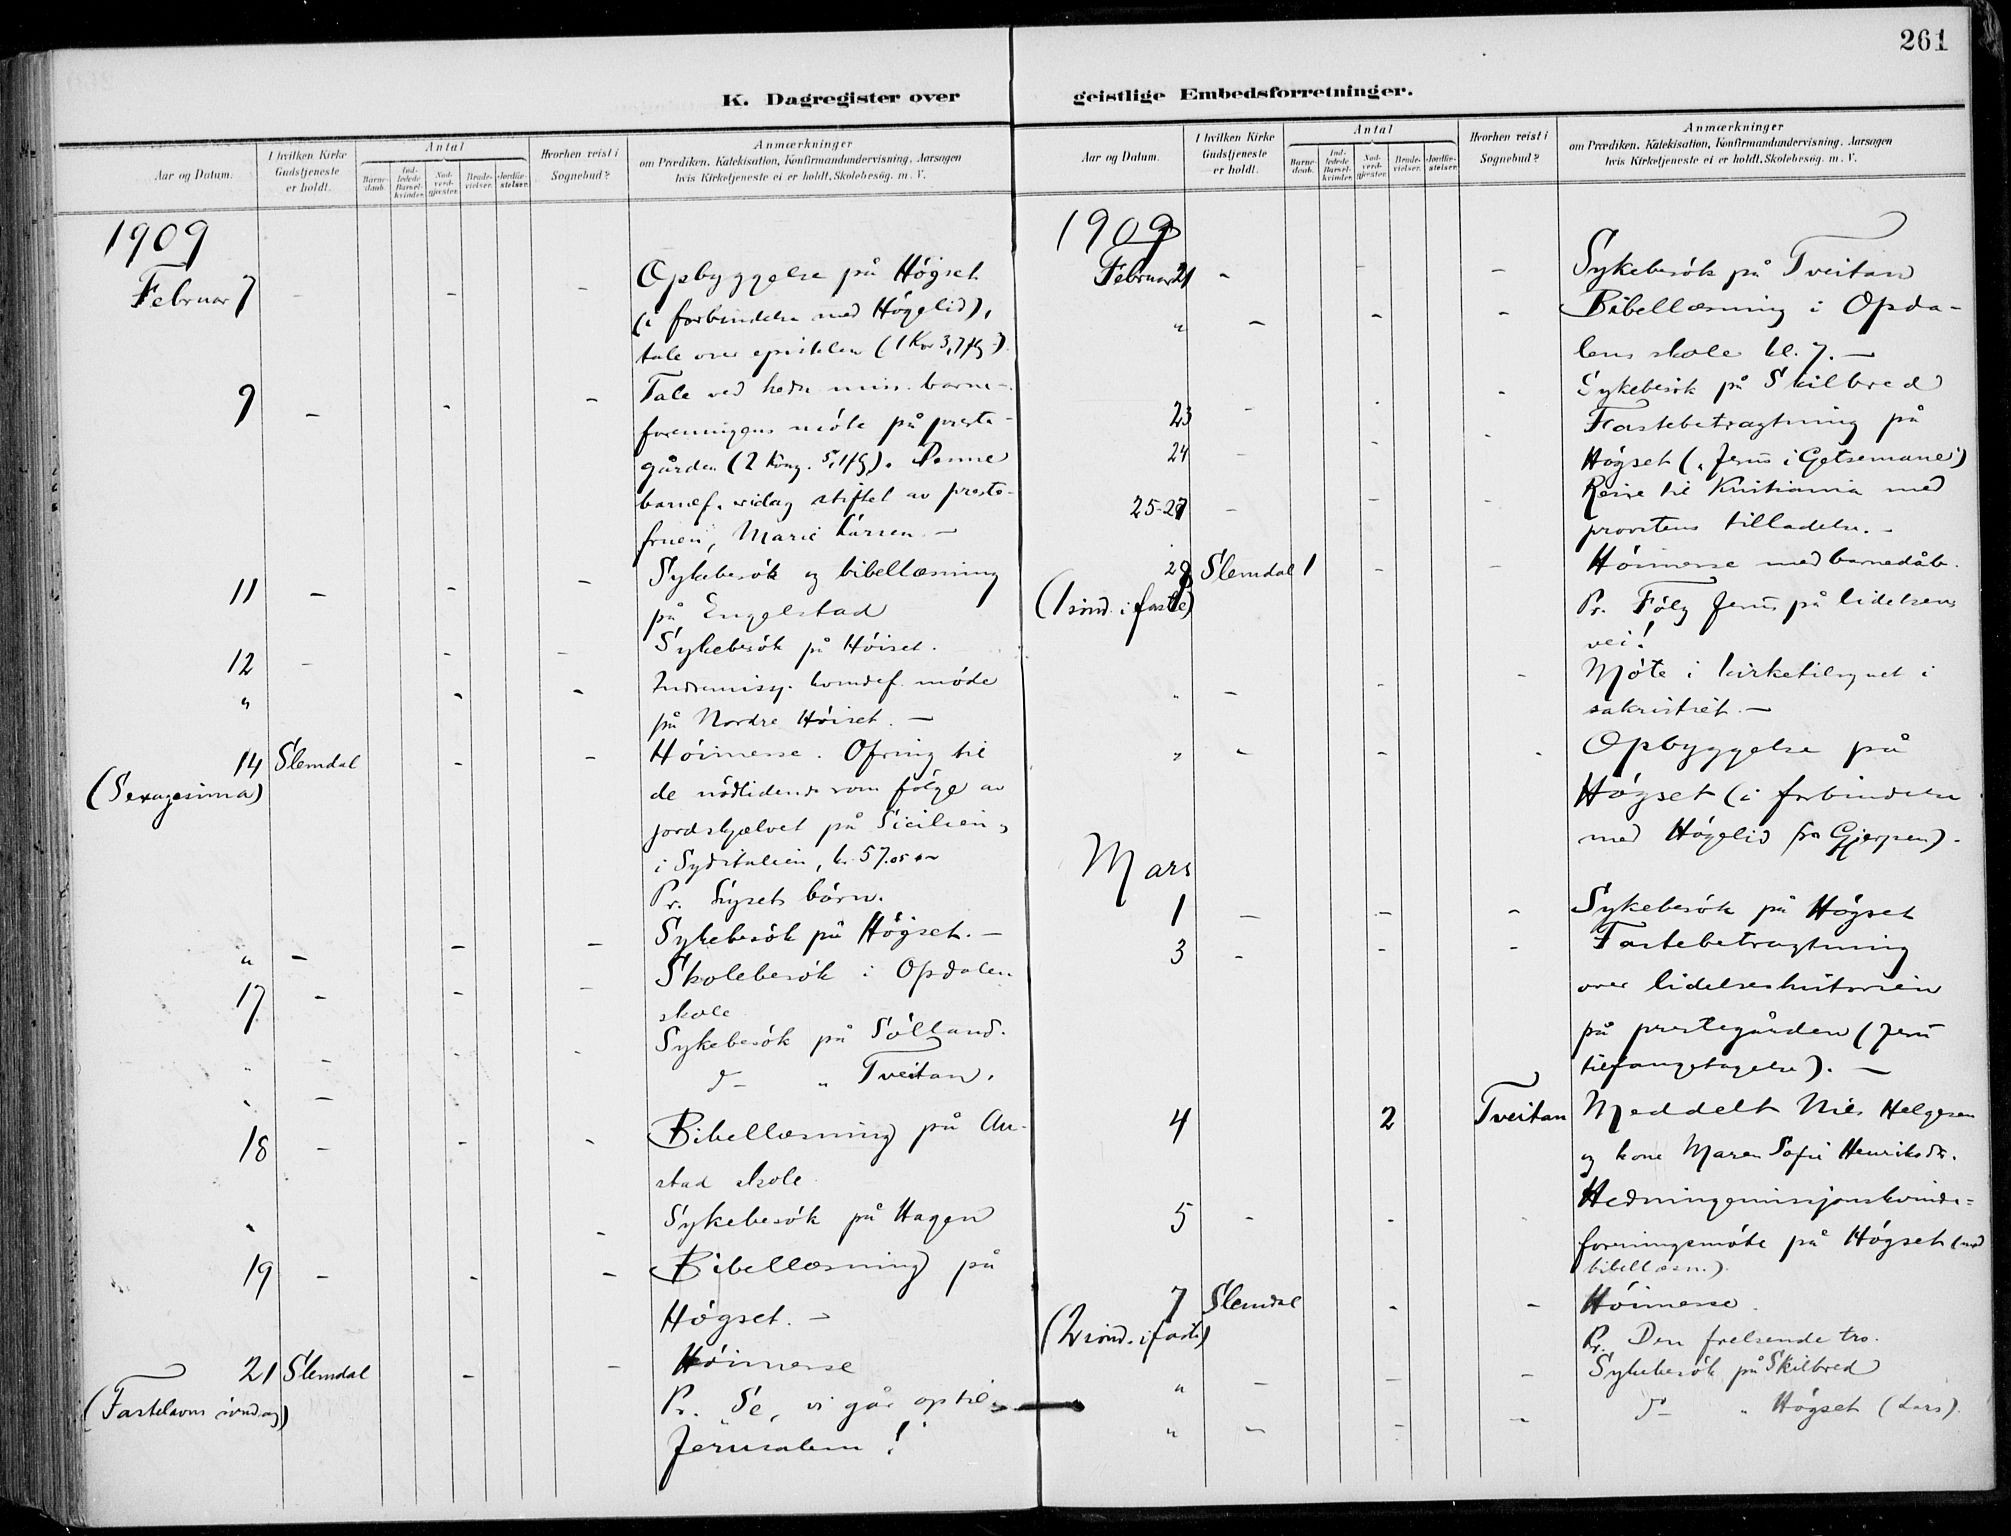 261
K. Dagregister over
geistlige Embedsforretninger.
Aar og Datum.
I hvilken Kirke Gudstjeneste er holdt.
Antal
Barnedaab.
Indledede Barselkvinder.
Nadverdgjester.
Brudevielser.
Jordfæstelser.
Hvorhen reist i Sognebud?
Anmærkninger
om Prædiken, Katekisation, Konfirmandundervisning, Aarsagen
hvis Kirketjeneste ei er holdt, Skolebesøg. m. V.
1909
Februar 7 - - - Opbyggelse på Högset
(i forbindelse med Högelid),
tale over epistelen (1 Kor 3,7flg).
9 - - - Tale ved hedn. miss. barne-
foreningens möte på preste-
gården (2 Kong. 5,1flg). Denne
barnef. idag stiftet av preste-
fruen, Marie Larsen. -
11 - - - Sykebesök og bibellæsning
på Engelstad
12 - - - Sykebesök på Höiset.
" - - Indremissj. kvindef. möde
på Nordre Höiset. -
14 Slemdal - - Höimesse. Ofring til
(Sexagesima) de nödlidende som fölge av
jordskjælvet på Sicilien og
i Syditalien, kr. 57.05
Pr. Lysets börn.
" - - - Sykebesök på Högset. -
17 - - - Skolebesök i Opdalen
skole
" - - Sykebesök på Sölland.
" - do " Tveitan.
18 - - - Bibellæsning på Au-
stad skole.
" - Sykebesök på Hagen
19 - - - Bibellæsning på
Högset. -
21 Slemdal - - Höimesse
(Fastelavns söndag) Pr. Se, vi går op til
Jerusalem!
Aar og Datum.
I hvilken Kirke Gudstjeneste er holdt.
Antal
Barnedaab.
Indledede Barselkvinder.
Nadverdgjester.
Brudevielser.
Jordfæstelser.
Hvorhen reist i Sognebud?
Anmærkninger
om Prædiken, Katekisation, Konfirmandundervisning, Aarsagen
hvis Kirketjeneste ei er holdt, Skolebesøg. m. V.
1909
Februar 21 - - - Sykebesök på Tveitan
" - - - Bibellæsning i Opda-
lens skole kl. 7. -
23 - - - Sykebesök på Skilbred
24 - - - Fastebetragtning på
Högset („Jesus i Getsemane")
25-27 - - - Reise til Kristiania med
provstens tilladelse. -
28 Slemdal 1 - - Höimesse med barnedåb.
(1 sönd. i faste) Pr. Fölg Jesus på lidelsens
vei!
" - - - Möte i kirketilsynet i
sakristiet. -
" - - - Opbyggelse på
Högset (i forbindelse
med Högelid fra Gjerpen).
Mars
1 - - - Sykebesök på Högset
3 - - - Fastebetragtning
over lidelseshistorien
på prestegården (Jesu
tilfangetagelse). -
4 2 Tveitan Meddelt Nils Helgesen
og kone Maren Sofie Henriksdr.
5 - - - Hedningemissjonskvinde-
foreningsmöte på Högset (med
bibellæsn.).
7 Slemdal - - Höimesse.
(2 sönd. i faste) Pr. Den frelsende tro.
" - - - Sykebesök på Skilbred
" - - - do " Högset (Lars).